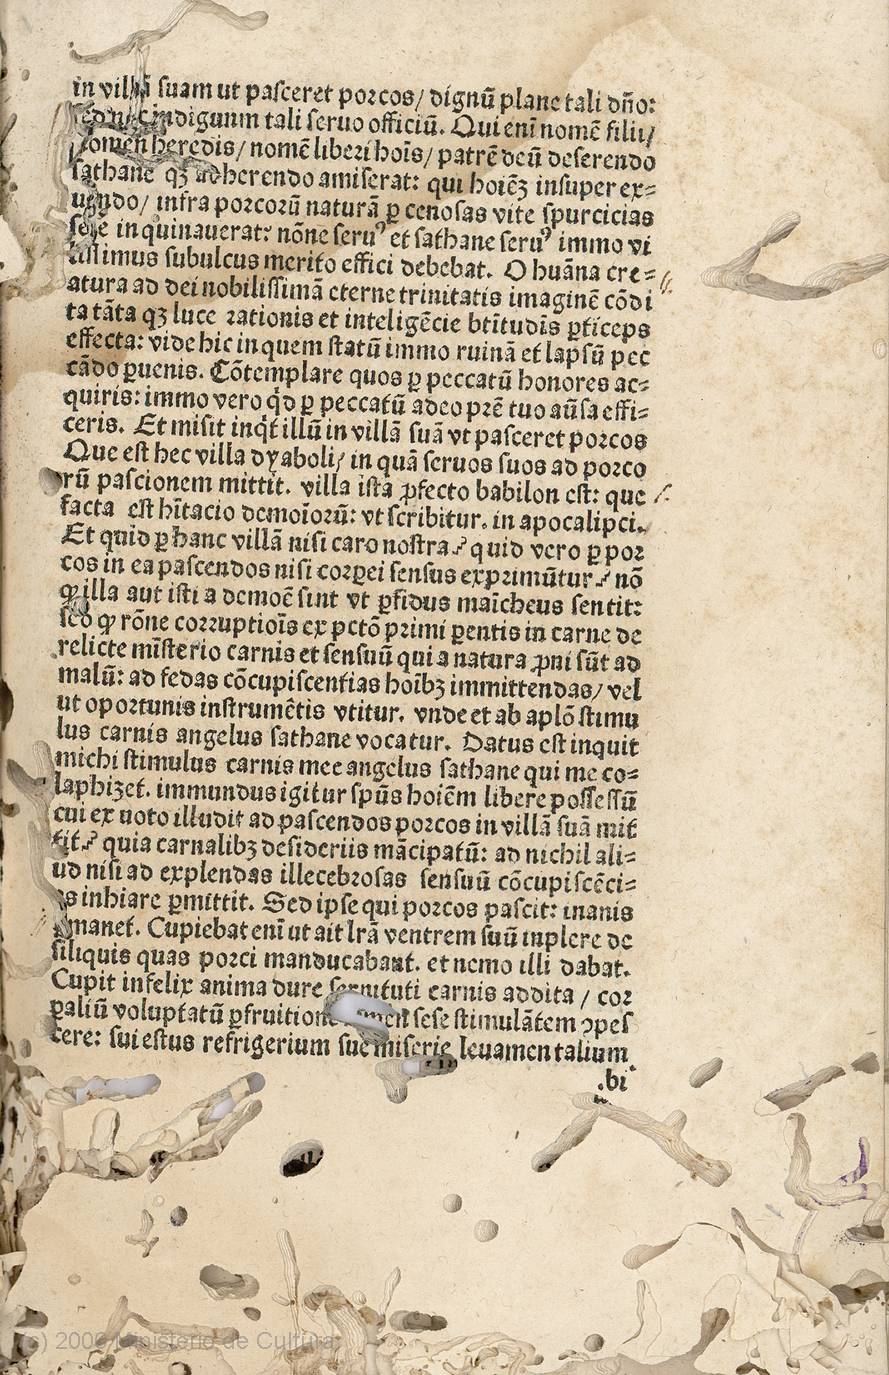 in villã suam ut pasceret porcos/ dignũ plane tali dño:
indignum tali seruo officiũ. Qui enĩ nomẽ filii/
nomen heredis/ nomẽ liberi hoĩs/ patrẽ deũ deserendo
sathane qʒ adherendo amiserat: qui hoiẽʒ insuper ex⸗
uendo/ infra porcorũ naturã ꝑ cenosas vite spurcicias
sese inquinauerat: nõne seruꝰ et sathane seruꝰ immo vi
lissimus subulcus merito effici debebat. O huãna cre⸗
atura ad dei nobilissimã eterne trinitatis imaginẽ cõdi
ta tãta qʒ luce rationis et inteligẽcie btĩtudĩs ꝑticeps
effecta: vide hic in quem statũ immo ruinã et lapsũ pec
cãdo ꝑuenis. Cõtemplare quos ꝑ peccatũ honores ac⸗
quiris: immo vero qd̓ ꝑ peccatũ adeo prẽ tuo aũsa effi⸗
ceris. Et misit inqt̓ illũ in villã suã vt pasceret porcos
Que est hec villa dyaboli/ in quã seruos suos ad porco
rũ pascionem mittit. villa ista ꝓfecto babilon est: que
facta est hĩtacio demoĩorũ: vt scribitur. in apocalipci.
Et quid ꝑ hanc villã nisi caro nostra? quid vero ꝑ por
cos in ea pascendos nisi corꝑei sensus exprimũtur? nõ
ꝙ illa aut isti a demoẽ sint vt ꝑfidus maĩcheus sentit:
sed ꝙ rõne corruptioĩs ex pctõ primi ꝑentis in carne de
relicte mĩsterio carnis et sensuũ qui a natura ꝓni sũt ad
malũ: ad fedas cõcupiscentias hoĩbʒ immittendas/ vel
ut oportunis instrumẽtis vtitur. vnde et ab aplõ stimu
lus carnis angelus sathane vocatur. Datus est inquit
michi stimulus carnis mee angelus sathane qui me co⸗
laphizet. immundus igitur spũs hoiẽm libere possessũ
cui ex uoto illudit ad pascendos porcos in villã suã mit
tit? quia carnalibʒ desideriis mãcipatũ: ad nichil ali⸗
ud nisi ad explendas illecebrosas sensuũ cõcupiscẽci⸗
as inhiare ꝑmittit. Sed ipse qui porcos pascit: inanis
remanet. Cupiebat enĩ ut ait lrã ventrem suũ inplere de
siliquis quas porci manducabant. et nemo illi dabat.
Cupit infelix anima dure seruituti carnis addita / cor
ꝑaliũ voluptatũ ꝑfruitione sese stimulãtem ↄpes
cere: sui estus refrigerium sue miserie leuamen talium
.bi
(c) 2006 Ministerio de Cultura